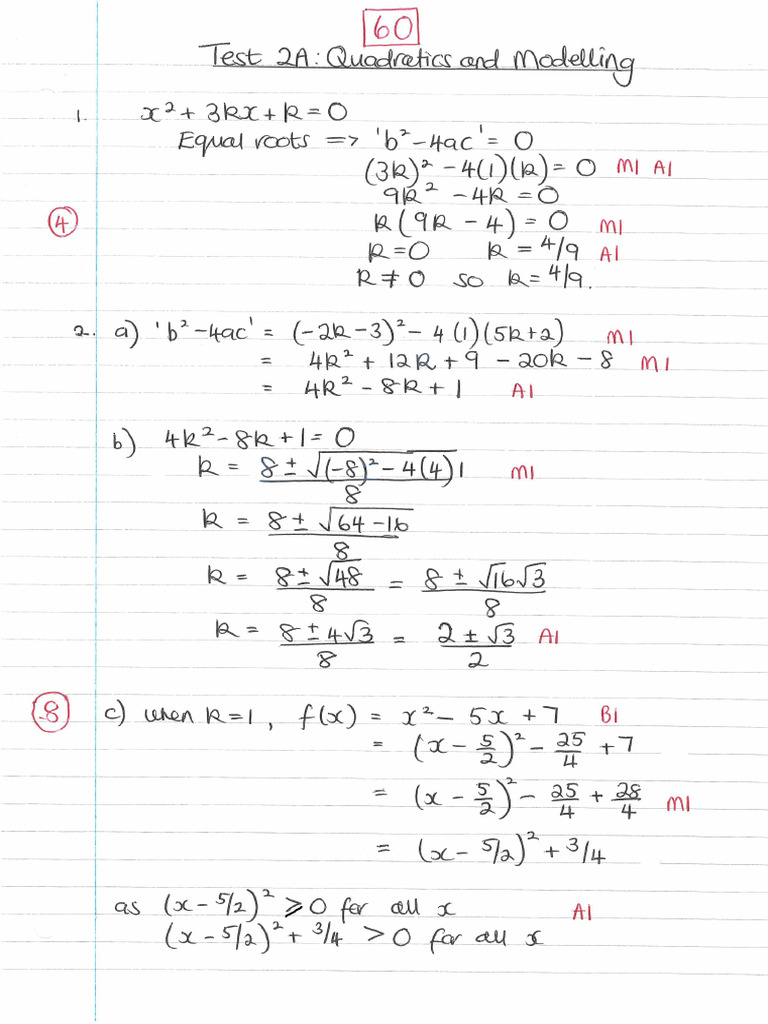 60
Test 2A: Quadratics and Modelling
1. x² + 3kx + k = 0
Equal roots => 'b² - 4ac' = 0
(3k)² - 4(1)(k) = 0 M1 A1
9k² - 4k = 0
④ k(9k - 4) = 0 M1
k = 0 k = 4/9 A1
k ≠ 0 so k = 4/9.
2. a) 'b² - 4ac' = (-2k - 3)² - 4(1)(5k + 2) M1
= 4k² + 12k + 9 - 20k - 8 M1
= 4k² - 8k + 1 A1
b) 4k² - 8k + 1 = 0
k = (8 ± √((-8)² - 4(4)1))/8 M1
k = (8 ± √(64 - 16))/8
k = (8 ± √48)/8 = (8 ± √16√3)/8
k = (8 ± 4√3)/8 = (2 ± √3)/2 A1
⑧ c) when k = 1, f(x) = x² - 5x + 7 B1
= (x - 5/2)² - 25/4 + 7
= (x - 5/2)² - 25/4 + 28/4 M1
= (x - 5/2)² + 3/4
as (x - 5/2)² ⩾ 0 for all x A1
(x - 5/2)² + 3/4 > 0 for all x